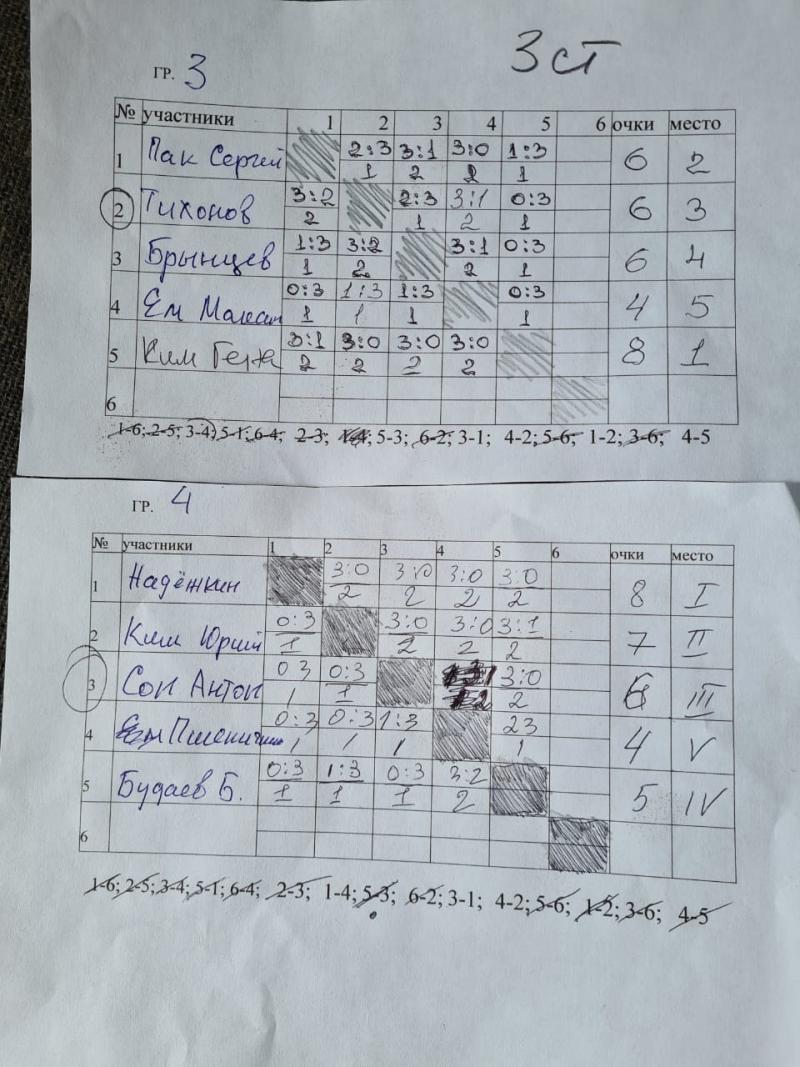 3 ст
ГР. 3
№ участники 1 2 3 4 5 6 очки место
1 Пак Сергей 2:3 3:1 3:0 1:3 6 2
1 2 2 1
2 Тихонов 3:2 2:3 3:1 0:3 6 3
2 1 2 1
3 Брынцев 1:3 3:2 3:1 0:3 6 4
1 2 2 1
4 Ем Максим 0:3 1:3 1:3 0:3 4 5
1 1 1 1
5 Ким Гена 3:1 3:0 3:0 3:0 8 1
2 2 2 2
6
1-6; 2-5; 3-4; 5-1; 6-4; 2-3; 1-4; 5-3; 6-2; 3-1; 4-2; 5-6; 1-2; 3-6; 4-5
ГР. 4
№ участники 1 2 3 4 5 6 очки место
1 Надёжкин 3:0 3:0 3:0 3:0 8 I
2 2 2 2
2 Ким Юрий 0:3 3:0 3:0 3:1 7 II
1 2 2 2
3 Сон Антон 0 3 0:3 3:1 3:0 6 III
1 1 2 2
4 0:3 0:3 1:3 23 4 V
1 1 1 1
5 Будаев Б. 0:3 1:3 0:3 3:2 5 IV
1 1 1 2
6
1-6; 2-5; 3-4; 5-1; 6-4; 2-3; 1-4; 5-3; 6-2; 3-1; 4-2; 5-6; 1-2; 3-6; 4-5